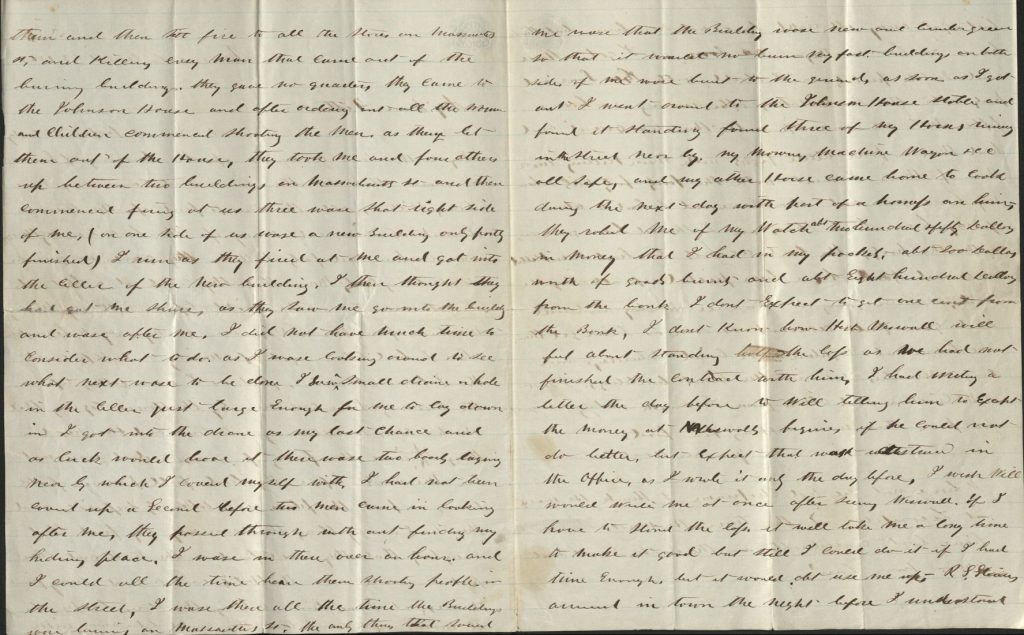 them and then set fire to all the stores on Massachusetts
st, and Killing every man that came out of the
burning buildings. they gave no quarters they came to
the Johnson House and after ordering out all the women
and Children commenced shooting the men as they let
them out of the House, they took me and four others
up between two buildings on Massachusetts st and then
commenced firing at us three wase shot right side
of me, (on one side of us wase a new Building only partly
finished) I run as they fired at me and got into
the celler of the new building. I then thought they
had got me shure, as they saw me go into the building
and wase after me, I did not have much time to
Consider what to do. as I wase looking around to see
what next wase to be done I small hole
in the celler just large Enough for me to lay down
in I got into the as my last Chance and
as luck would have it there wase two laying
near by which I coverd my self with, I had not been
coverd up a Second before two men came in looking
after me, they passed through with out finding my
hiding place. I wase in there over an hour, and
I could all the time hear them shooting people in
the street, I wase there all the time the Buildings
were burning on Massachusetts st. the only thing that saved
me wase that the Building wase new and timber green
so that it would not burn very fast. buildings on both
side of me were burnt to the ground, as soon as I got
out I went around to the Johnson House Stable and
found it standing found three of my Horses
in the Street near by, my Mowing Machine Wagon &c &c
all safe, and my other Horse came home to
during the next day with part of a harness on him,
they robed me of my Watch abt two hundred & fifty Dollars
in money that I had in my pocket, abt 200 Dollars
worth of goods burnt and abt Eight hundred Dollars
from the bank I dont Expect to get one cent from
the Bank, I dont know how will
feel about standing half the loss as we had not
finished the Contract with him, I had written a
letter the day before to Will telling him to Exept
the money at figures if he could not
do better, but Expect that in
the Office, as I wrote it only the day before, I wish Will
would write me at once after Seeing If I
have to stand the loss it will take me a long time
to make it good but still I could do it if I had
time Enough, but it would abt use me up, R. S. Stevens
arrived in town the night before I understand